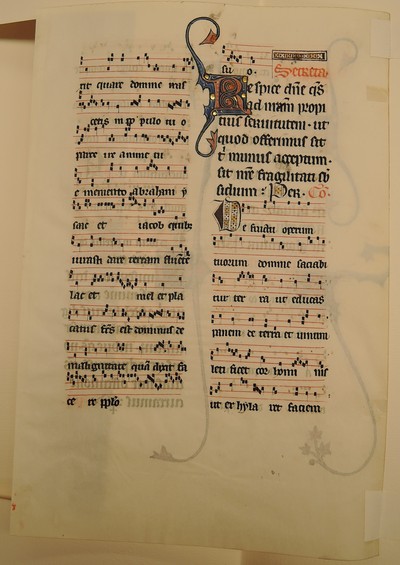 rit quare domine iras
ceris in pplo tu o
parce ire anime tu
e memento abraham y
saac et iacob quib;
iurasti dare terram fluente
lac et mel et pla
catus est dominus de
malignitate quam dixit fa
ce re pplo
su o. Secreta.
Respice dne qs
ad nram propi
tius servitutem. ut
quod offerimus sit
t munus acceptum.
sit nre fragilitati
sidium: Per. Co.
De fructu operum
tuorum domine saciabi
tur ter ra ut educas
panem de terra et vinum
leti ficet cor homi nis
ut ex hyla ret faciem